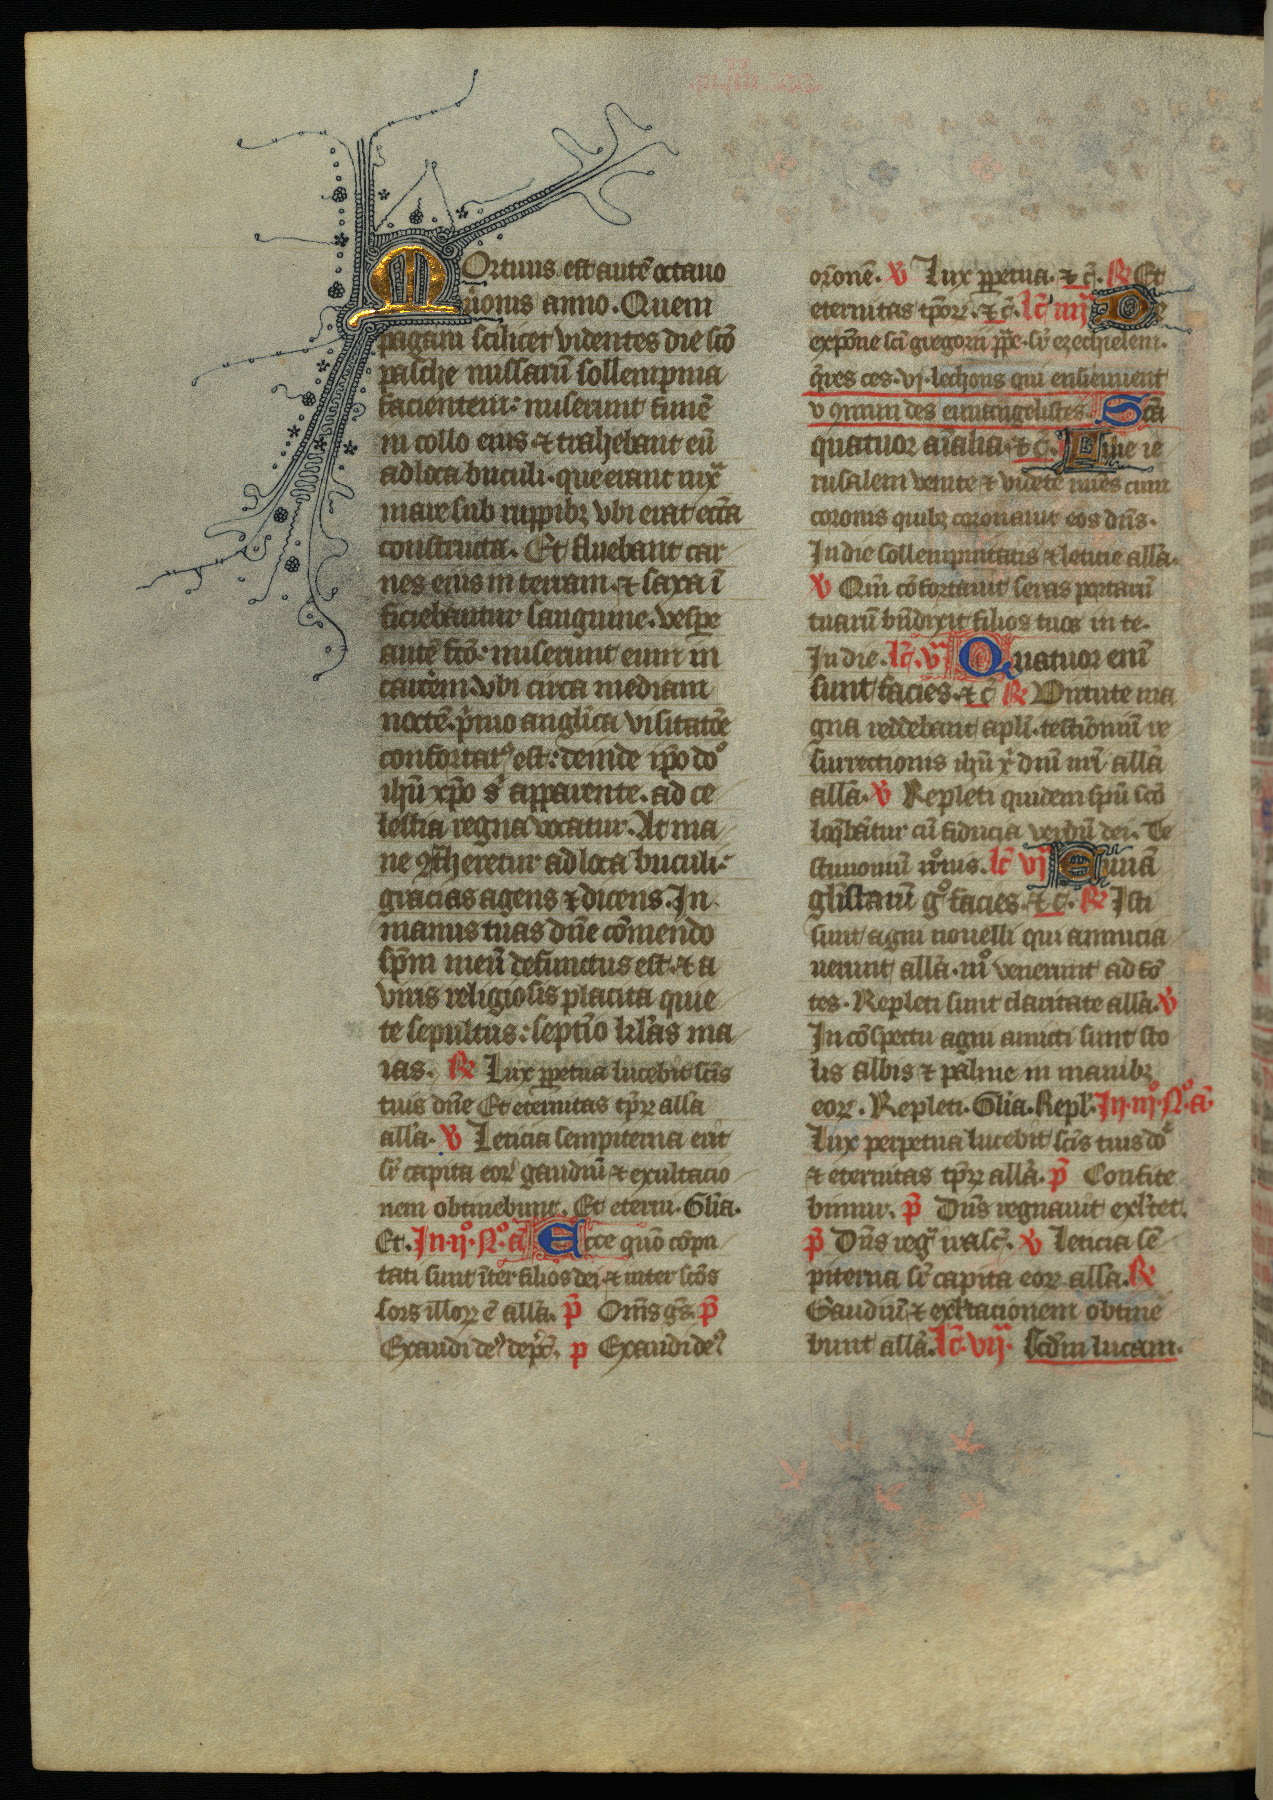 Mortuus est autē octauo
n̄onis anno. Quem
pagani scilicet videntes die sc̄o
pasche missarū sollempnia
facientem: miserunt funē
in collo eius ⁊ trahebant eū
ad loca buculi. que erant iuxͣ
mare sub ruppibꝫ vbi erat ecc̄ia
constructa. Et fluebant car
nes eius in terram. ⁊ saxa ī
ficiebantur sanguine. vespe
autē fc̄o: miserunt eum in
carcerem. vbi circa mediam
noctē. p̄mo anglica visitatōe
confortatꝰ est: deinde ip̄o dōo
ih̄u xp̄o sᷤ apparente. ad ce
lestia regna vocatur. At ma
ne ꝯtheretur ad loca buculi:
gracias agens ⁊ dicens. In
manus tuas dn̄e cōmendo
sp̄m meū defunctus est. ⁊ a
viris religiosis placita quie
te sepultus: septīo kl̄as ma
ias. ℟ Lux ꝑpetua lucebit sc̄is
tuis dn̄e Et eternitas tp̄rꝝ alla
all̄a. ℣ Leticia sempiterna erit
sr̄ capita eoꝝ gaudiū ⁊ exultacio
nem obtinebunt. Et eterni. Gl̄ia.
Et. In. ijᵒ. Nᵒ. ā Ecce quō cōpu
tati sunt īter filios dei ⁊ inter sc̄os
sors illoꝝ ē all̄a. p̄ Om̄s gs̄. p̄
Exaudi deꝰ dep̄c̄. p̄ Exaudi deꝰ
or̄onē. ℣ Lux ꝑpetua. ⁊ c̄. ℟ Et
eternitas tp̄oꝝ. ⁊ c̄. lc̄ iiij De
exp̄one sc̄i gregorii pp̄e. sr̄ ezechielem.
q̄res ces. vj. lechons qui ensieuuent
v ꝯmun des euuangelistes. Sc̄a
quatuor aīalia. ⁊ c̄. ℟ Filie ie
rusalem venite ⁊ videte mr̄es cum
coronis quibꝫ coronauit eos dn̄s.
In die sollempnitatis ⁊ leticie all̄a.
℣ Qm̄ cōfortauit seras portarū
tuarū bn̄dixit filios tuos in te.
In die. lc̄. v̄ Quatuor enī
sunt facies. ⁊ c̄ ℟ Virtute ma
gna reddebant apl̄i. testīoniū re
surrectionis ih̄u xp̄ dn̄i nr̄i all̄a
all̄a. ℣ Repleti quidem sp̄u sc̄o
loq̄bātur cū fiducia verbū dei. Te
stimoniū nr̄ius. lc̄ vj Euuā
glistarū gͦ facies. ⁊ c̄. ℟ Isti
sunt agni nouelli qui annucia
uerunt all̄a. mͦ venerunt ad fō
tes. Repleti sunt claritate all̄a. ℣
In cōspectu agni amicti sunt sto
lis albis ⁊ palme in manibꝫ
eoꝝ. Repleti. Gl̄ia. Repl̄. In. iijᵒ. Nᵒ. ā
Lux perpetua lucebit sc̄is tuis dōe
⁊ eternitas tp̄rꝝ all̄a. p̄ Confite
bimur. p̄ Dn̄s regnauit exl̄tet.
p̄ Dn̄s regͣ irasc̄. ℣ Leticia sē
piterna sr̄ capita eoꝝ alla. ℟
Gaudiū ⁊ exl̄tacionem obtine
bunt all̄a. lc̄. vij. Scd̄m lucam.